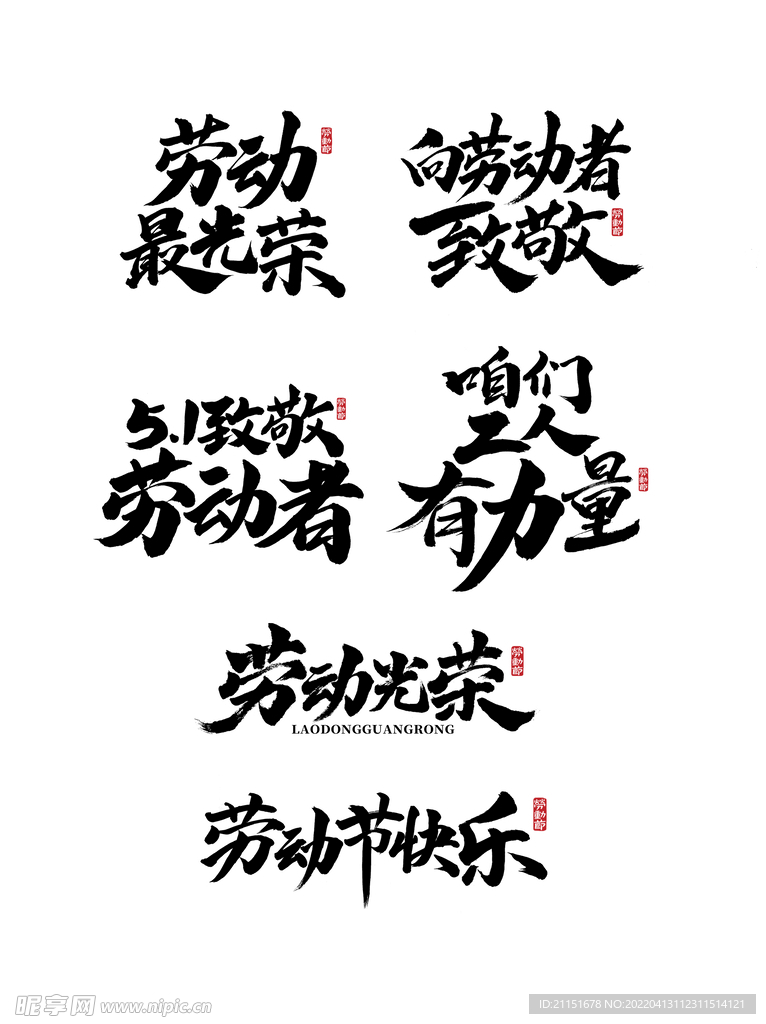 劳动
最光荣
勞動節
向劳动者
致敬
勞動節
5.1致敬
劳动者
勞動節
咱们
工人
有力量
勞動節
劳动光荣
LAODONGGUANGRONG
勞動節
劳动节快乐
勞動節
昵享网 www.nipic.cn
ID:21151678 NO:20220413112311514121